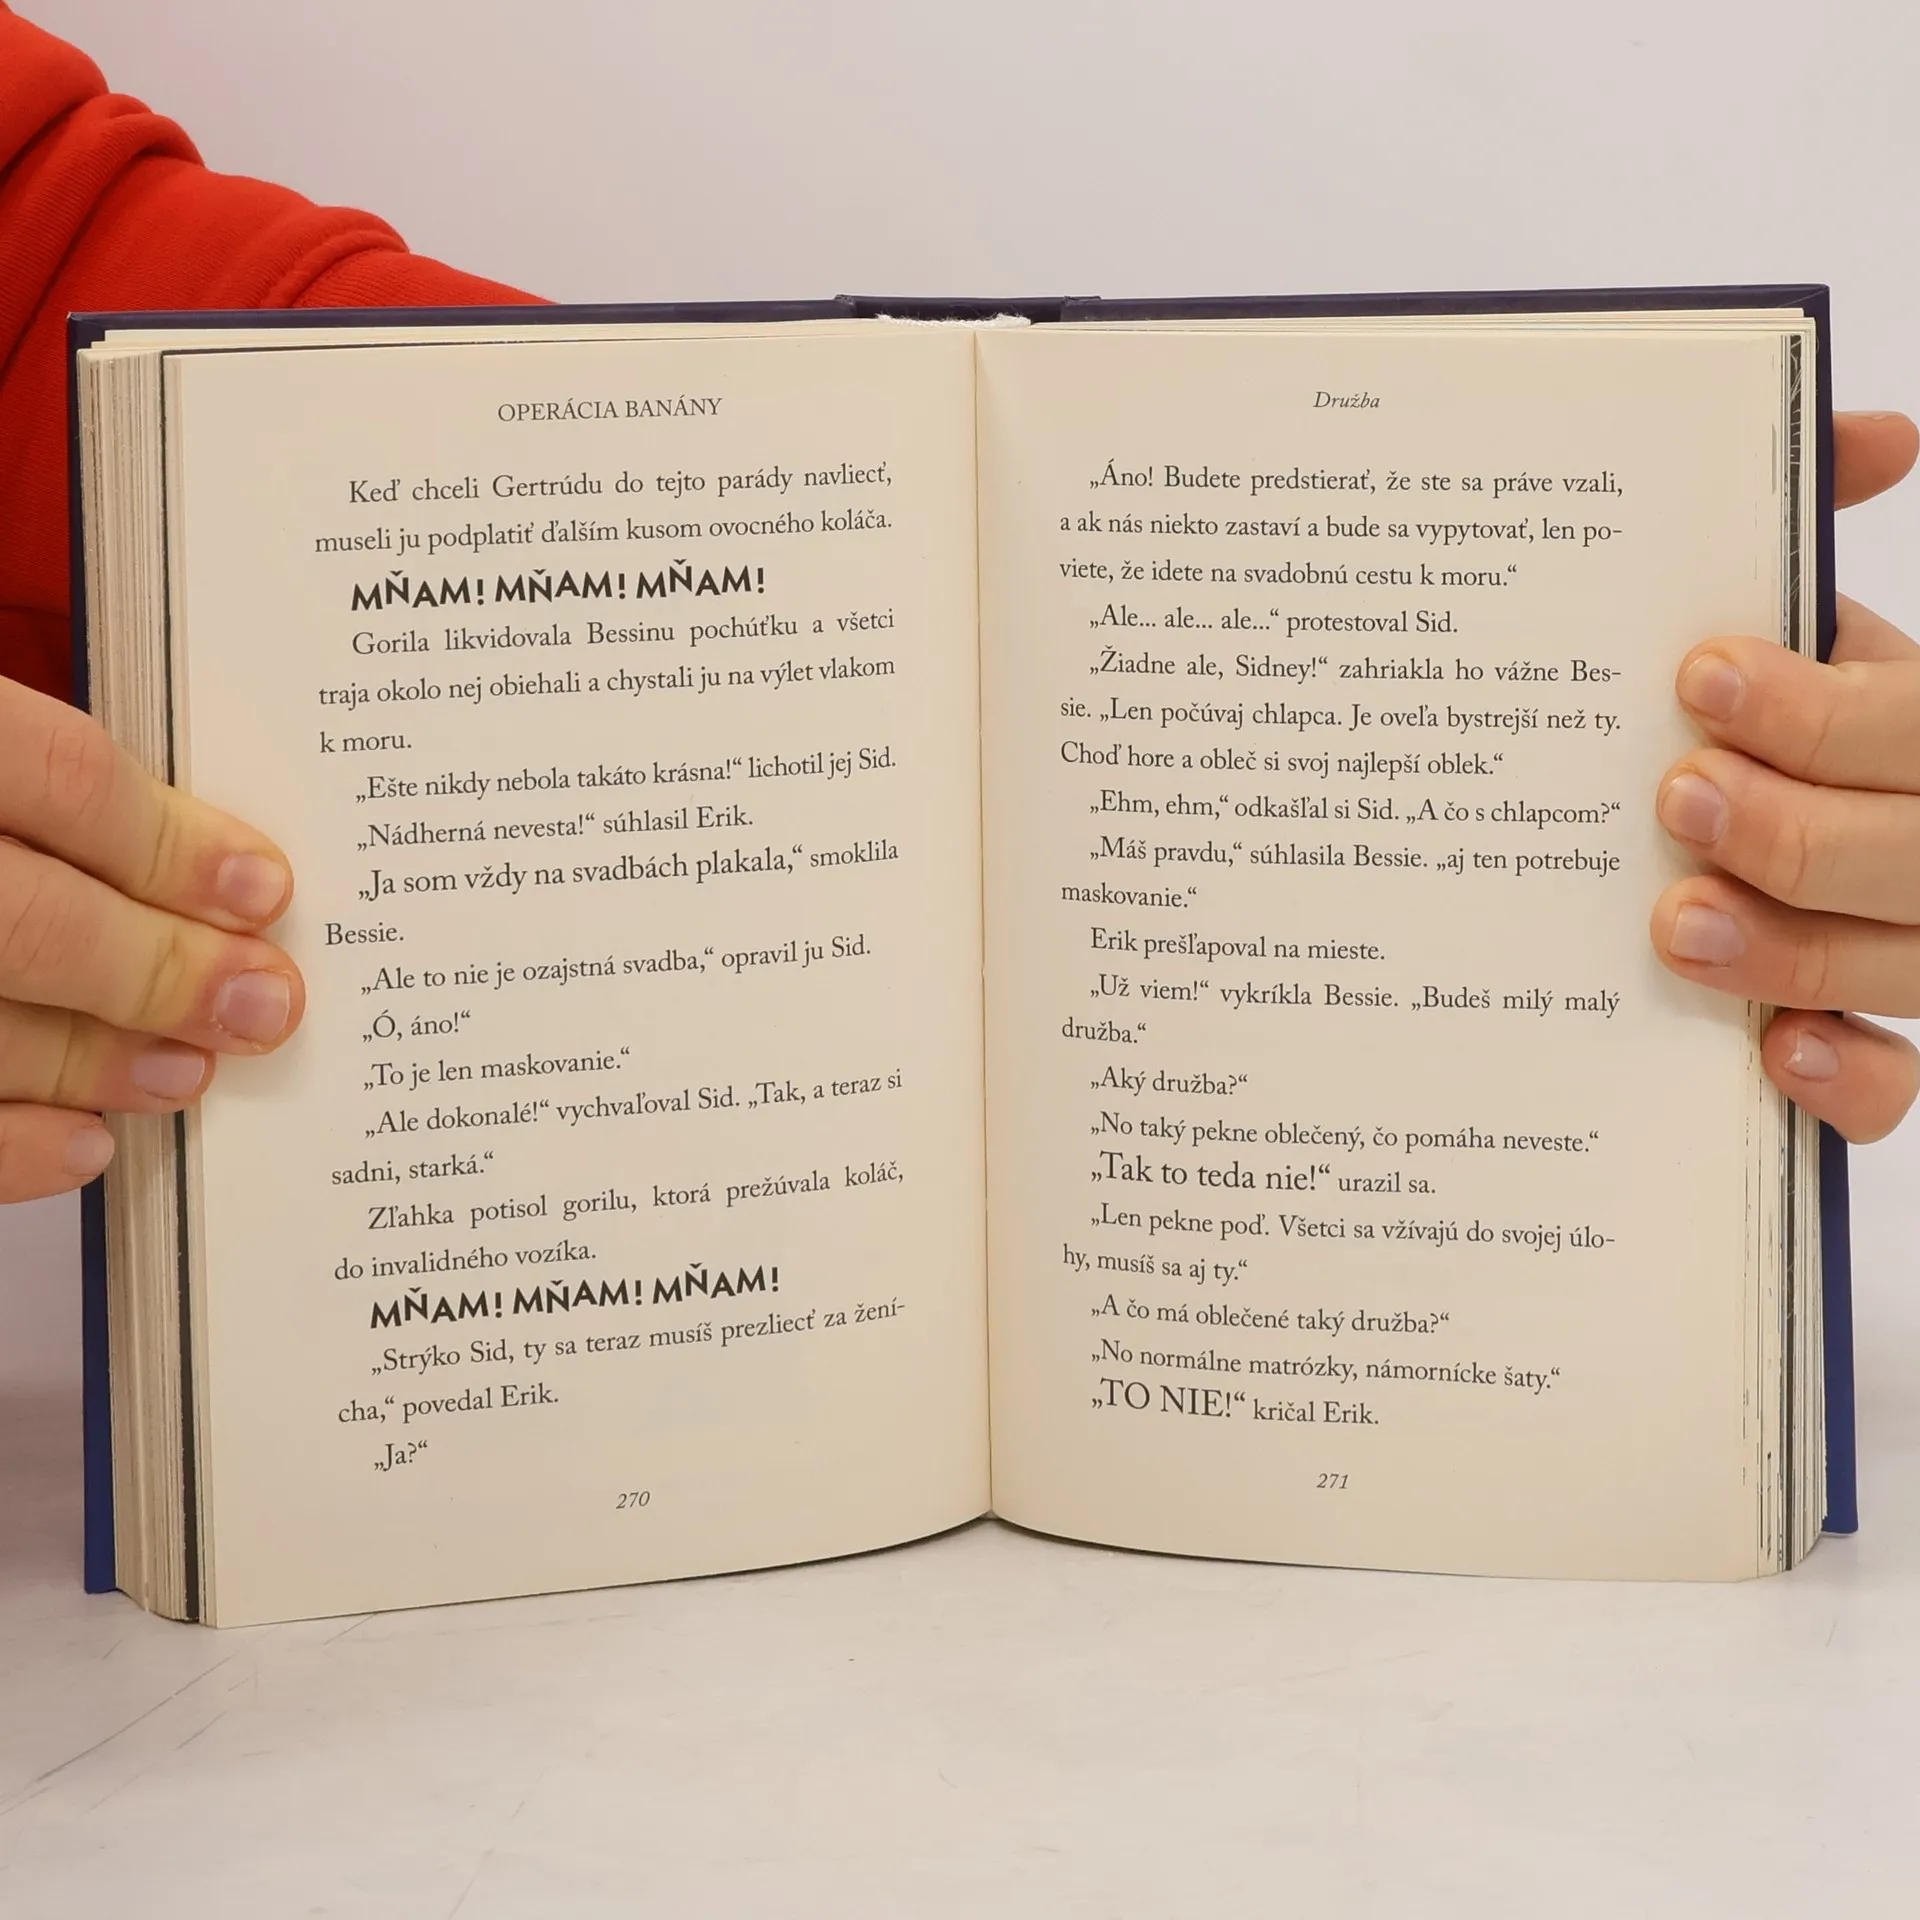 OPERÁCIA BANÁNY
Keď chceli Gertrúdu do tejto parády navliecť,
museli ju podplatiť ďalším kusom ovocného koláča.
MŇAM! MŇAM! MŇAM!
Gorila likvidovala Bessinu pochúťku a všetci
traja okolo nej obiehali a chystali ju na výlet vlakom
k moru.
„Ešte nikdy nebola takáto krásna!“ lichotil jej Sid.
„Nádherná nevesta!“ súhlasil Erik.
„Ja som vždy na svadbách plakala,“ smoklila
Bessie.
„Ale to nie je ozajstná svadba,“ opravil ju Sid.
„Ó, áno!“
„To je len maskovanie.“
„Ale dokonalé!“ vychvaľoval Sid. „Tak, a teraz si
sadni, starká.“
Zľahka potisol gorilu, ktorá prežúvala koláč,
do invalidného vozíka.
MŇAM! MŇAM! MŇAM!
„Strýko Sid, ty sa teraz musíš prezliecť za žení-
cha,“ povedal Erik.
„Ja?“
270
Družba
„Áno! Budete predstierať, že ste sa práve vzali,
a ak nás niekto zastaví a bude sa vypytovať, len po-
viete, že idete na svadobnú cestu k moru.“
„Ale... ale... ale...“ protestoval Sid.
„Žiadne ale, Sidney!“ zahriakla ho vážne Bes-
sie. „Len počúvaj chlapca. Je oveľa bystrejší než ty.
Choď hore a obleč si svoj najlepší oblek.“
„Ehm, ehm,“ odkašľal si Sid. „A čo s chlapcom?“
„Máš pravdu,“ súhlasila Bessie. „aj ten potrebuje
maskovanie.“
Erik prešľapoval na mieste.
„Už viem!“ vykríkla Bessie. „Budeš milý malý
družba.“
„Aký družba?“
„No taký pekne oblečený, čo pomáha neveste.“
„Tak to teda nie!“ urazil sa.
„Len pekne poď. Všetci sa vžívajú do svojej úlo-
hy, musíš sa aj ty.“
„A čo má oblečené taký družba?“
„No normálne matrózky, námornícke šaty.“
„TO NIE!“ kričal Erik.
271